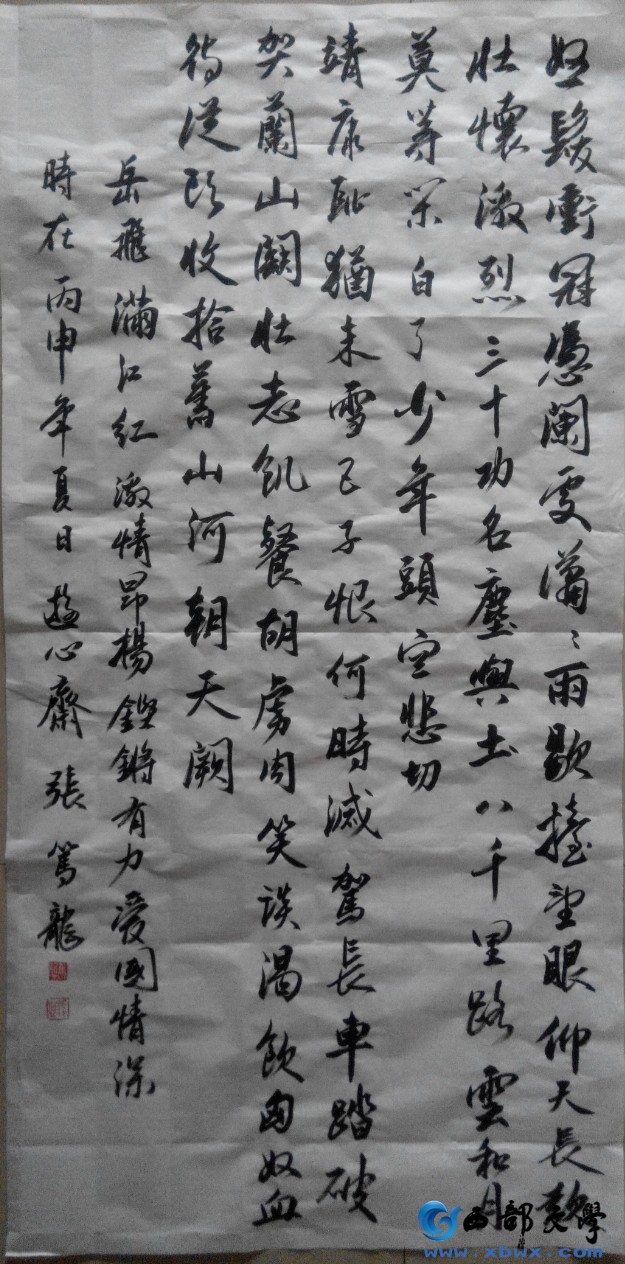 怒髮衝冠憑闌處瀟〻雨歇擡望眼仰天長歗
壯懷激烈三十功名塵與土八千里路雲和月
莫等閑白了少年頭空悲切
靖康恥猶未雪臣子恨何時滅駕長車踏破
賀蘭山闕壯志飢餐胡虜肉笑談渴飲匈奴血
待從頭收拾舊山河朝天闕
岳飛滿江紅激情昂楊鏗鏘有力愛國情深
時在丙申年夏日遊心齋張篤龍
西部文學
www.xbwx.com